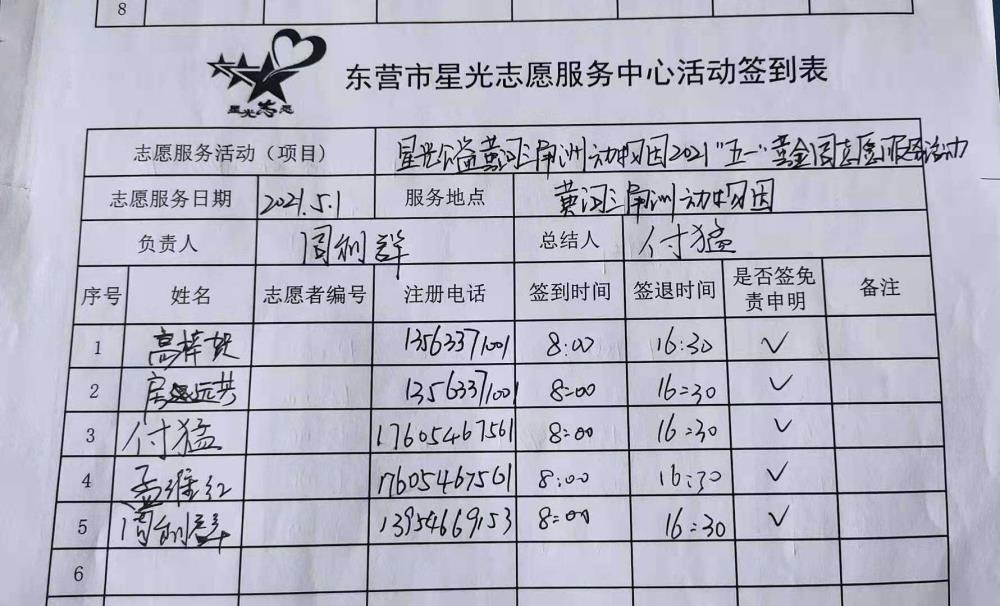 8
星光志愿
东营市星光志愿服务中心活动签到表
志愿服务活动（项目） 星光公益黄河三角洲动物园2021“五一”黄金周志愿服务活动
志愿服务日期 2021.5.1 服务地点 黄河三角洲动物园
负责人 周利群 总结人 付猛
序号 姓名 志愿者编号 注册电话 签到时间 签退时间 是否签免责申明 备注
1 高梓贺 13563371001 8:00 16:30 ✓
2 13563371001 8:00 16:30 ✓
3 付猛 17605467561 8:00 16:30 ✓
4 孟维红 17605467561 8:00 16:30 ✓
5 周利群 13954669153 8:00 16:30 ✓
6